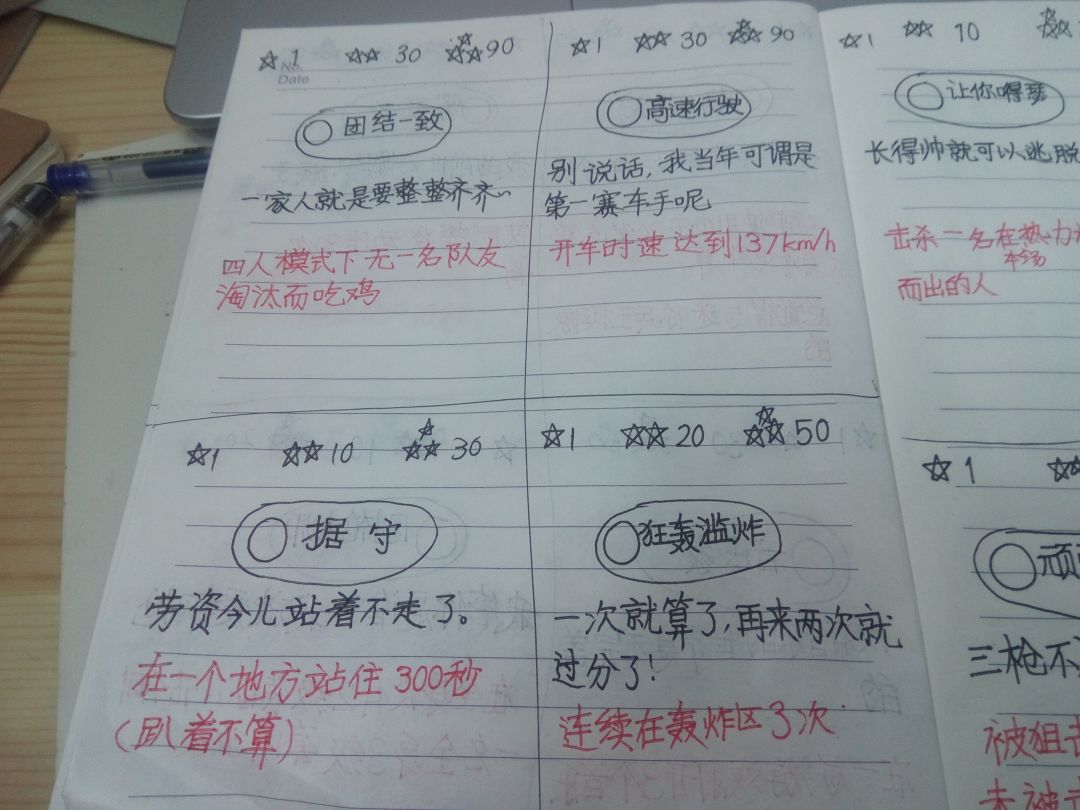 ☆1 ☆☆ 30 ☆☆☆90
No.
Date
团结一致
一家人就是要整整齐齐~
四人模式下无一名队友
淘汰而吃鸡
☆1 ☆☆ 30 ☆☆☆ 90
高速行驶
别说话,我当年可谓是
第一赛车手呢
开车时速达到137km/h
☆1 ☆☆ 10 ☆☆
让你嘚瑟
长得帅就可以逃脱
击杀一名在热力
本场
而出的人
☆1 ☆☆10 ☆☆☆ 30
据守
劳资今儿站着不走了。
在一个地方站住 300秒
(趴着不算)
☆1 ☆☆20 ☆☆☆50
狂轰滥炸
一次就算了,再来两次就
过分了!
连续在轰炸区3次
☆ 1 ☆☆
顽
三枪不
被狙击
未被